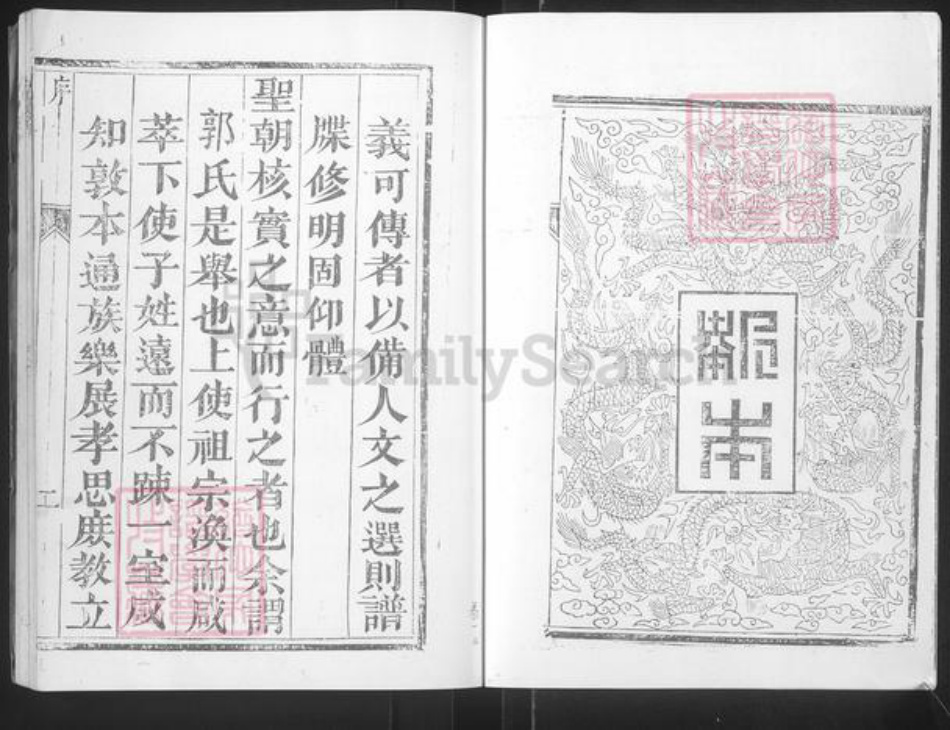 報本
義可傳者以備人文之選則譜
牒修明固仰體
聖朝核實之意而行之者也余謂
郭氏是舉也上使祖宗渙而咸
萃下使子姓遠而不踈一室咸
知敦本通族樂展孝思庶教立
序
FamilySearch